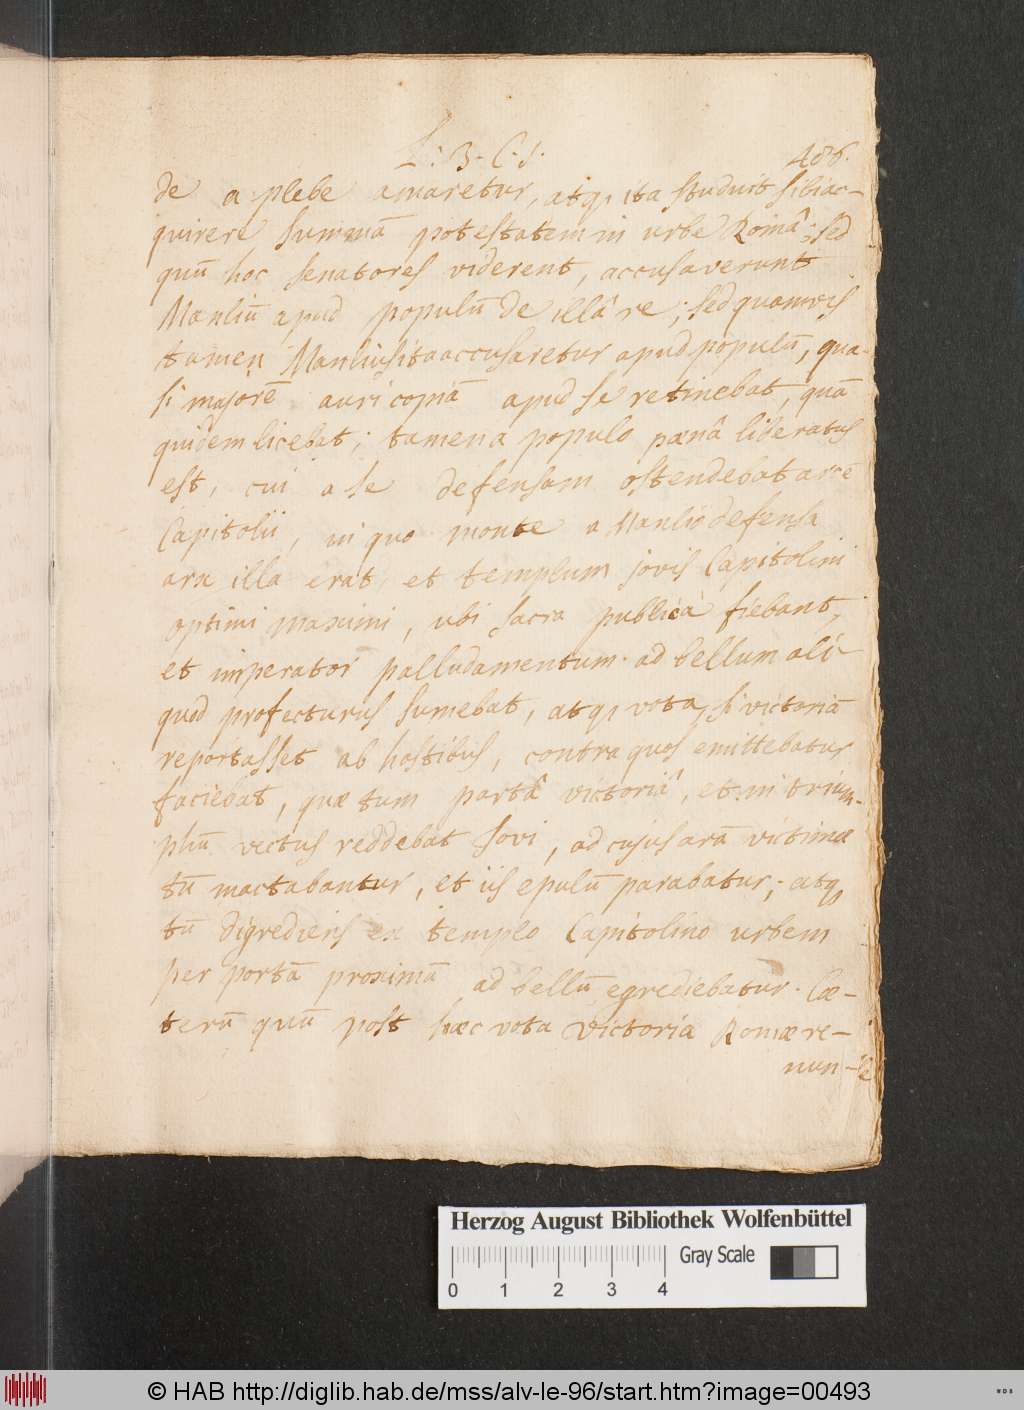 L: 3. C. 1. 486.
de a plebe amaretur, atq; ita studuit sibi ac-
quirere summā potestatem in urbe Romā; sed
quū hoc senatores viderent, accusaverunt
Manliū apud populū de illâ re; sed quamvis
tamen Manlius ita accusaretur apud populū, qua-
si majorē auri copiā apud se retinebat, quā
quidem licebat; tamen a populo pænâ liberatus
est, cui a se defensam ostendebat arcē
Capitolii, in quo monte a Manlio defensa
arx illa erat, et templum jovis Capitolini
optimi maximi, ubi sacra publica fiebant,
et imperator palludamentum ad bellum ali-
quod profecturus sumebat, atq; vota, si victoriā
reportasset ab hostibus, contra quos emittebatur
faciebat, quæ tum partâ victoriâ, et in trium-
phū vectus reddebat Jovi, ad cujus arā victimæ
tū mactabantur, et iis epulū parabatur; atq;
tū digrediens ex templo Capitolino urbem
per portā proximā ad bellū egrediebatur. Cæ-
terū quū post hæc vota victoria Romæ re-
nun-
Herzog August Bibliothek Wolfenbüttel
Gray Scale
0 1 2 3 4
© HAB http://diglib.hab.de/mss/alv-le-96/start.htm?image=00493